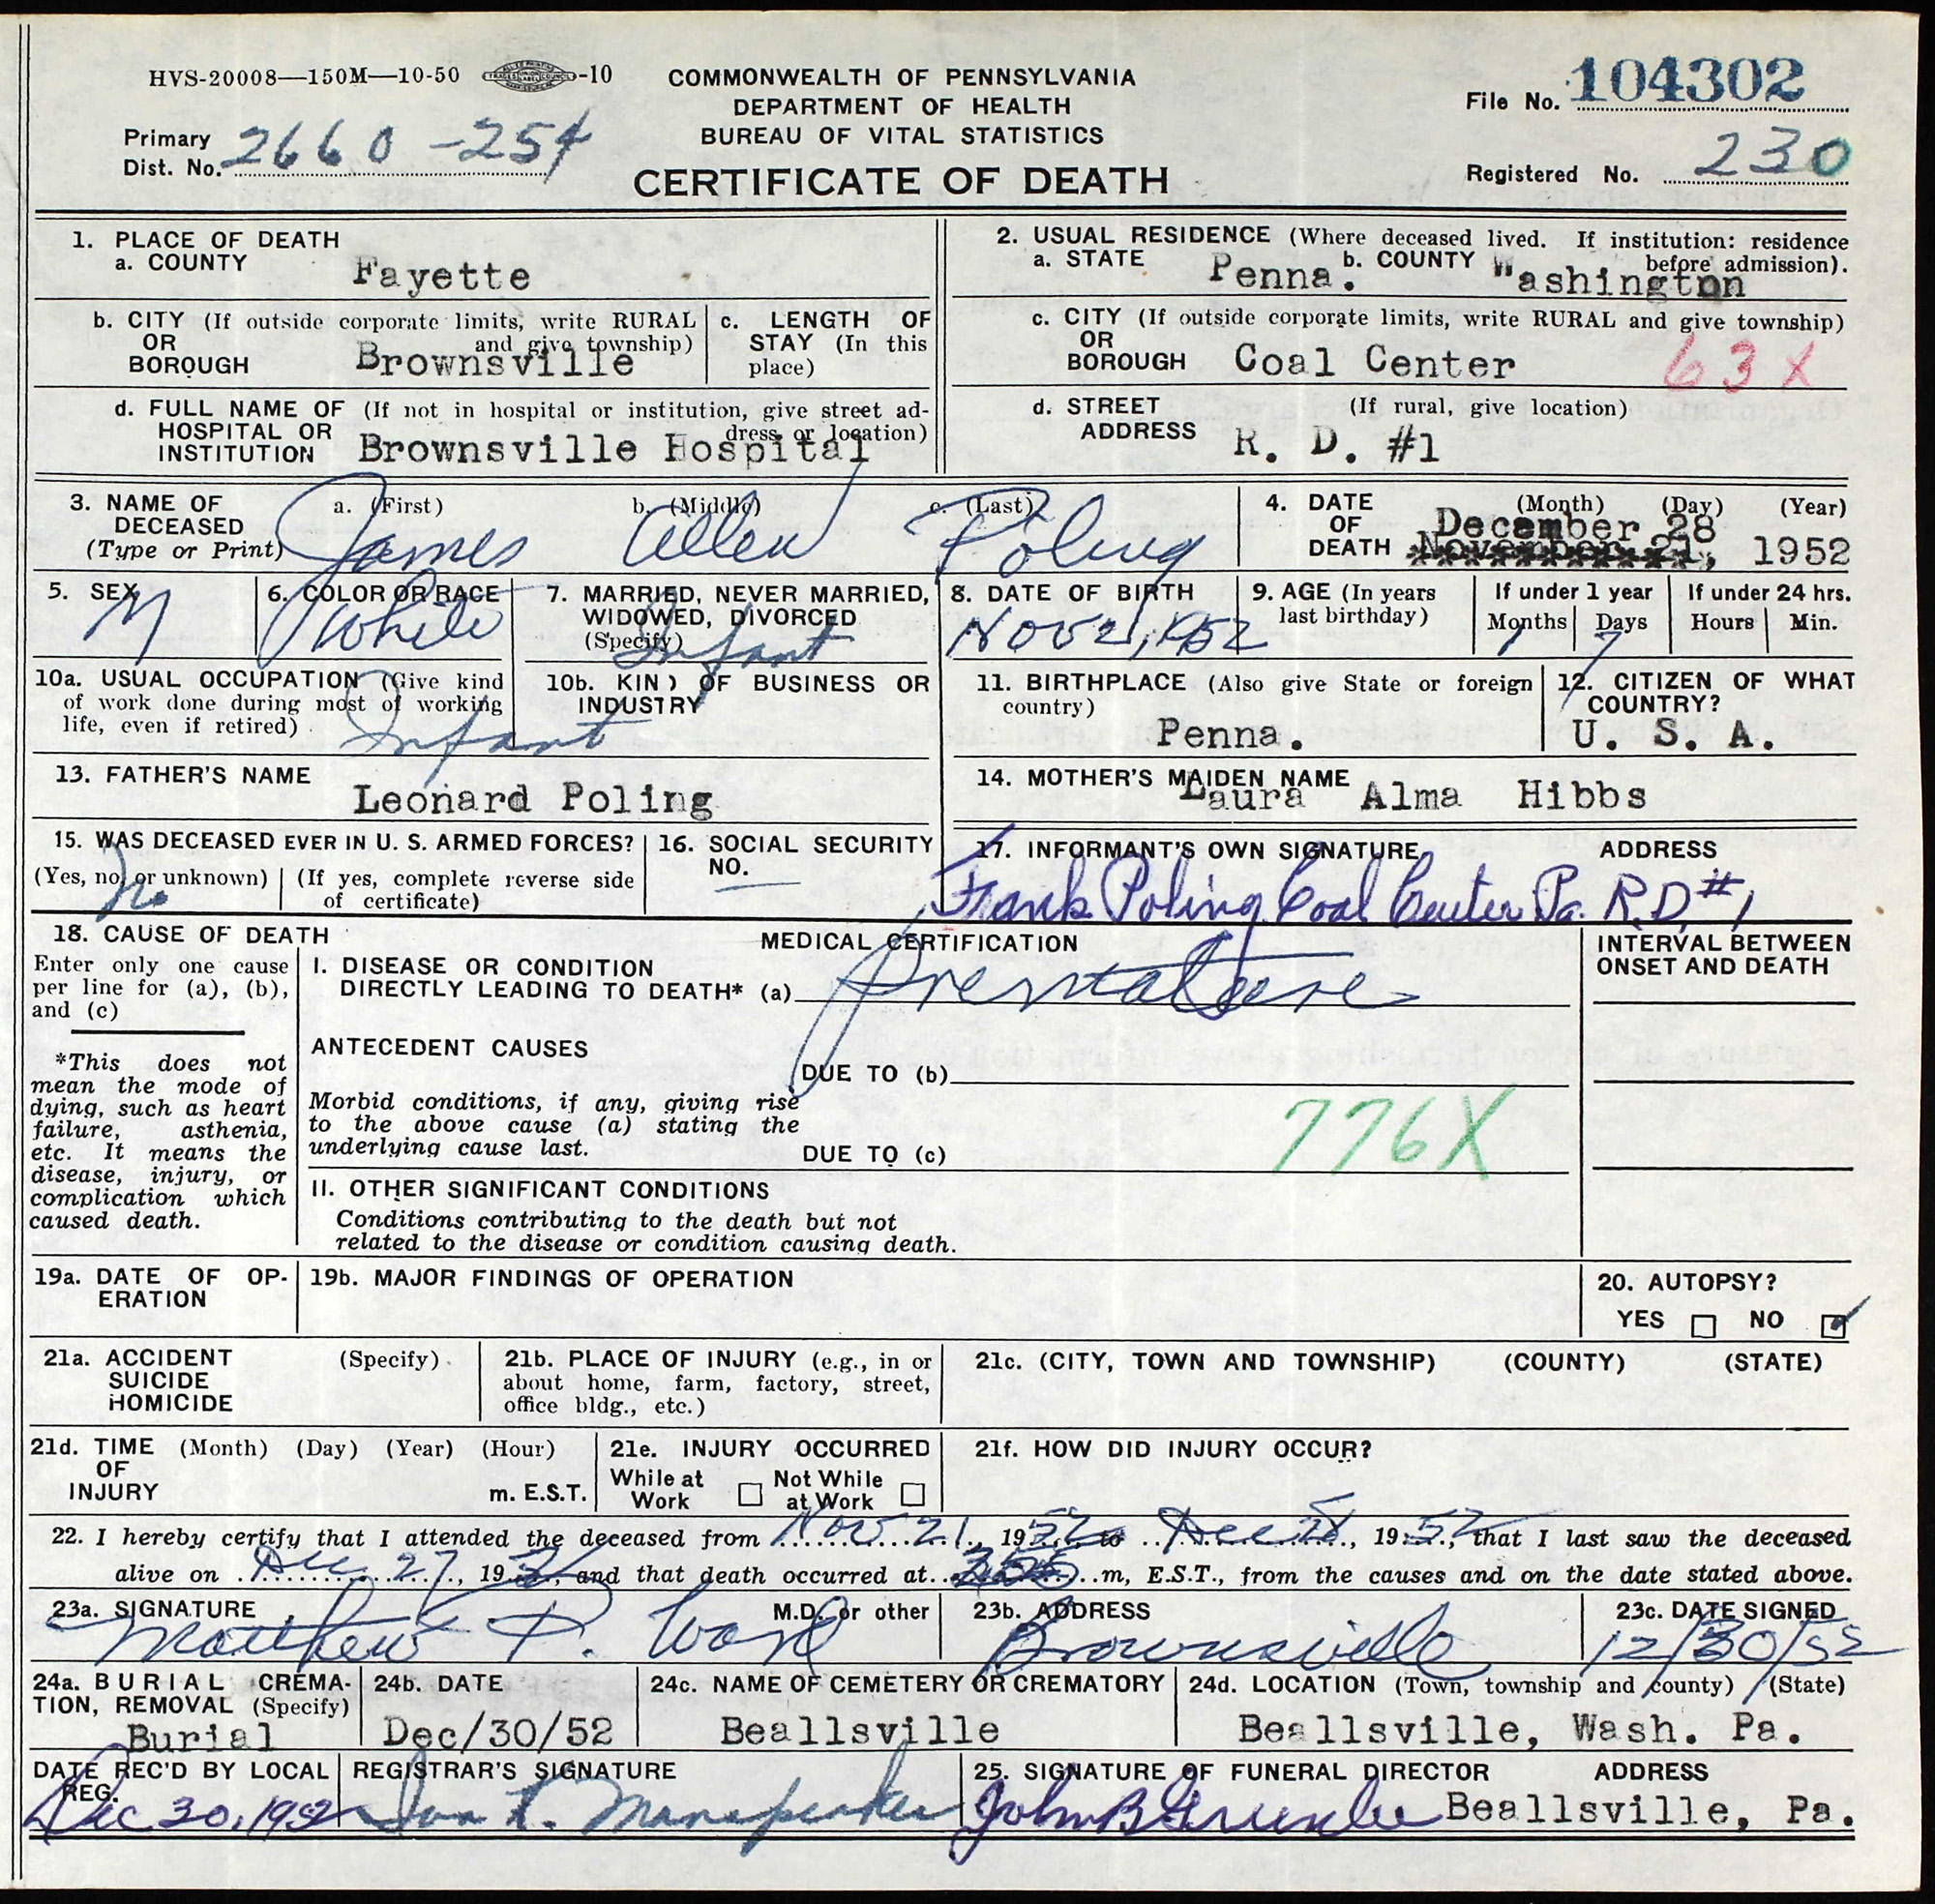 HVS-20008—150M—10-50 -10
COMMONWEALTH OF PENNSYLVANIA
DEPARTMENT OF HEALTH
BUREAU OF VITAL STATISTICS
CERTIFICATE OF DEATH
File No. 104302
Primary Dist. No. 2660-254
Registered No. 230
1. PLACE OF DEATH
a. COUNTY Fayette
b. CITY (If outside corporate limits, write RURAL
OR and give township)
BOROUGH Brownsville
c. LENGTH OF
STAY (In this
place)
d. FULL NAME OF (If not in hospital or institution, give street ad-
HOSPITAL OR dress or location)
INSTITUTION Brownsville Hospital
2. USUAL RESIDENCE (Where deceased lived. If institution: residence
before admission).
a. STATE Penna. b. COUNTY Washington
c. CITY (If outside corporate limits, write RURAL and give township)
OR
BOROUGH Coal Center 63X
d. STREET (If rural, give location)
ADDRESS R. D. #1
3. NAME OF a. (First) b. (Middle) c. (Last)
DECEASED
(Type or Print) James Allen Poling
4. DATE (Month) (Day) (Year)
OF December 28
DEATH November 21, 1952
5. SEX M
6. COLOR OR RACE White
7. MARRIED, NEVER MARRIED,
WIDOWED, DIVORCED
(Specify) Infant
8. DATE OF BIRTH
Nov 21, 1952
9. AGE (In years
last birthday)
If under 1 year
Months Days
1 7
If under 24 hrs.
Hours Min.
10a. USUAL OCCUPATION (Give kind
of work done during most of working
life, even if retired) Infant
10b. KIND OF BUSINESS OR
INDUSTRY
11. BIRTHPLACE (Also give State or foreign
country)
Penna.
12. CITIZEN OF WHAT
COUNTRY?
U. S. A.
13. FATHER'S NAME
Leonard Poling
14. MOTHER'S MAIDEN NAME
Laura Alma Hibbs
15. WAS DECEASED EVER IN U. S. ARMED FORCES?
(Yes, no, or unknown) (If yes, complete reverse side
of certificate)
No
16. SOCIAL SECURITY
NO.
17. INFORMANT'S OWN SIGNATURE ADDRESS
Frank Poling Coal Center Pa. R.D #1
18. CAUSE OF DEATH
Enter only one cause
per line for (a), (b),
and (c)
*This does not
mean the mode of
dying, such as heart
failure, asthenia,
etc. It means the
disease, injury, or
complication which
caused death.
MEDICAL CERTIFICATION
I. DISEASE OR CONDITION
DIRECTLY LEADING TO DEATH* (a) Premature
ANTECEDENT CAUSES
DUE TO (b)
Morbid conditions, if any, giving rise
to the above cause (a) stating the
underlying cause last.
DUE TO (c)
776X
II. OTHER SIGNIFICANT CONDITIONS
Conditions contributing to the death but not
related to the disease or condition causing death.
INTERVAL BETWEEN
ONSET AND DEATH
19a. DATE OF OP-
ERATION
19b. MAJOR FINDINGS OF OPERATION
20. AUTOPSY?
YES NO
21a. ACCIDENT (Specify)
SUICIDE
HOMICIDE
21b. PLACE OF INJURY (e.g., in or
about home, farm, factory, street,
office bldg., etc.)
21c. (CITY, TOWN AND TOWNSHIP) (COUNTY) (STATE)
21d. TIME (Month) (Day) (Year) (Hour)
OF
INJURY m. E.S.T.
21e. INJURY OCCURRED
While at Work Not While at Work
21f. HOW DID INJURY OCCUR?
22. I hereby certify that I attended the deceased from Nov 21, 1952 to Dec 28, 1952, that I last saw the deceased
alive on Dec 27, 1952, and that death occurred at m, E.S.T., from the causes and on the date stated above.
23a. SIGNATURE M.D. or other
Matthew P.
23b. ADDRESS
Brownsville
23c. DATE SIGNED
12/30/52
24a. BURIAL CREMA-
TION, REMOVAL (Specify)
Burial
24b. DATE
Dec/30/52
24c. NAME OF CEMETERY OR CREMATORY
Beallsville
24d. LOCATION (Town, township and county) (State)
Beallsville, Wash. Pa.
DATE REC'D BY LOCAL
REG.
Dec 30, 1952
REGISTRAR'S SIGNATURE
25. SIGNATURE OF FUNERAL DIRECTOR ADDRESS
John B Beallsville, Pa.